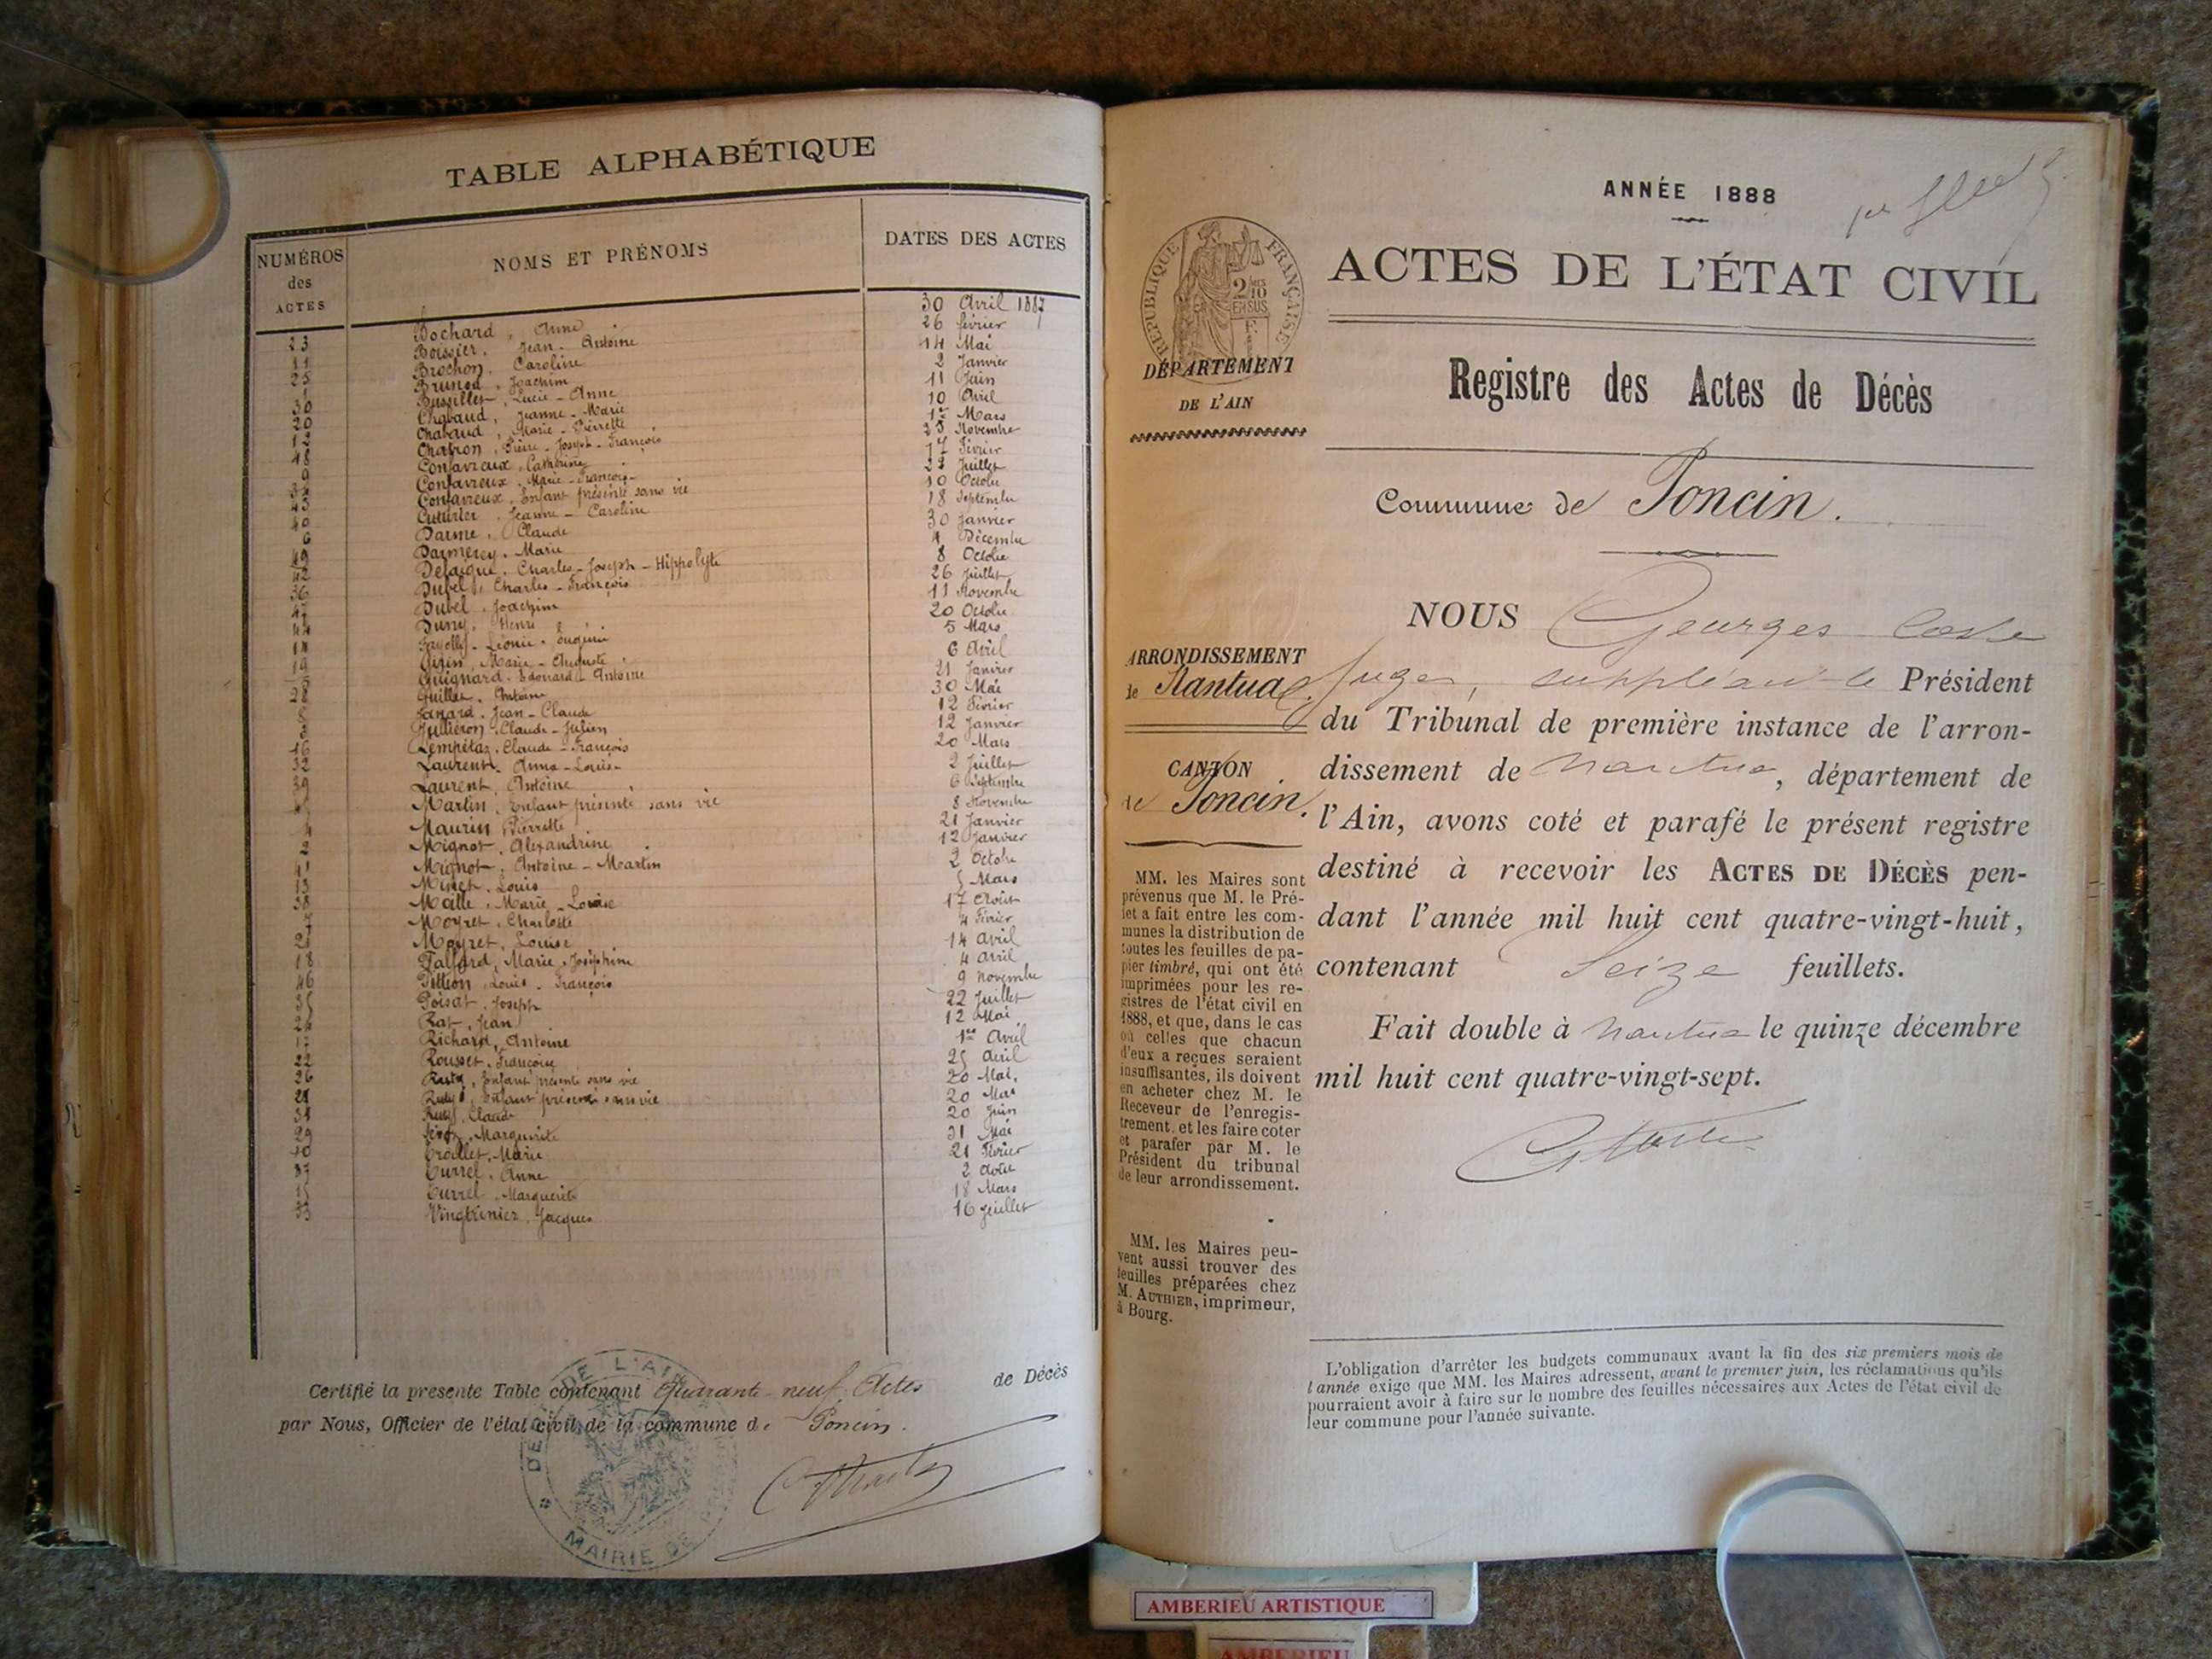 TABLE ALPHABÉTIQUE
NUMÉROS des ACTES
NOMS ET PRÉNOMS
DATES DES ACTES
Bochard, Anne 30 Avril 1887
23 Boissier, Jean-Antoine 26 février
11 Brochon, Caroline 14 Mai
25 Brunod, Joachim 2 Janvier
1 Bussillet, Lucie-Anne 11 Juin
30 Chabaud, Jeanne-Marie 10 Avril
20 Chabaud, Marie-Pierrette 1er Mars
12 Chatron, Pierre-Joseph-François 25 Novembre
48 Confavreux, Catherine 17 Février
9 Confavreux, Marie-François- 22 Juillet
Confavreux, Enfant présenté sans vie 10 Octobre
Cuturier, Jeanne-Caroline 18 Septembre
40 Darme, Claude 30 Janvier
6 Darmerey, Marie Décembre
49 Delaigue, Charles-Joseph-Hippolyte 8 Octobre
42 Dubel, Charles-François 26 Juillet
36 Dubel, Joachim 11 Novembre
47 Henri 20 Octobre
44 Fayolle, Léonie-Eugénie 5 Mars
14 Marie-Auguste 6 Avril
19 Guignard, Edouard-Antoine 21 Janvier
5 Guillet, Antoine 30 Mai
28 Janard, Jean-Claude 12 Février
8 Jullieron, Claude-Julien 12 Janvier
3 Lempétaz, Claude-François 20 Mars
16 Laurent, Anne-Louis- 2 Juillet
32 Laurent, Antoine 6 Septembre
39 Martin, Enfant présenté sans vie 8 Novembre
Maurin, Pierrette 21 Janvier
4 Mignot, Alexandrine 12 Janvier
2 Mignot, Antoine-Martin 2 Octobre
41 Louis 5 Mars
13 Marie-Louise 17 Août
38 Moyret, Charlotte 4 Février
7 Moyret, Louise 14 avril
21 Marie-Joséphine 4 avril
18 Louis-François 9 novembre
46 Poisat, Joseph 22 Juillet
35 Rat, Jean 12 Mai
24 Richard, Antoine 1er Avril
17 Rousset, Françoise 25 avril
22 Enfant présenté sans vie 20 Mai
26 Enfant présenté sans vie 20 Mai
Claude 20 Juin
31 Marguerite 31 Mai
29 Trollet, Marie 21 Février
10 Turrel, Anne 2 Août
37 Turrel, Marguerite 18 Mars
15 Vingtrinier, Jacques 16 Juillet
33
Certifié la présente Table contenant Quarante-neuf Actes de Décès
par Nous, Officier de l'état civil de la commune de Poncin.
DE L'AIN
MAIRIE DE
ANNÉE 1888
ACTES DE L'ÉTAT CIVIL
RÉPUBLIQUE FRANÇAISE
2/10 EN SUS
DÉPARTEMENT
DE L'AIN
Registre des Actes de Décès
Commune de Poncin.
NOUS Georges Coste
ARRONDISSEMENT
de Nantua
Juge, suppléant le Président
du Tribunal de première instance de l'arron-
dissement de Nantua, département de
CANTON
de Poncin.
l'Ain, avons coté et parafé le présent registre
destiné à recevoir les ACTES DE DÉCÈS pen-
dant l'année mil huit cent quatre-vingt-huit,
contenant Seize feuillets.
Fait double à Nantua le quinze décembre
mil huit cent quatre-vingt-sept.
MM. les Maires sont
prévenus que M. le Pré-
fet a fait entre les com-
munes la distribution de
toutes les feuilles de pa-
pier timbré, qui ont été
imprimées pour les re-
gistres de l'état civil en
1888, et que, dans le cas
où celles que chacun
d'eux a reçues seraient
insuffisantes, ils doivent
en acheter chez M. le
Receveur de l'enregis-
trement, et les faire coter
et parafer par M. le
Président du tribunal
de leur arrondissement.
MM. les Maires peu-
vent aussi trouver des
feuilles préparées chez
M. AUTHIER, imprimeur,
à Bourg.
L'obligation d'arrêter les budgets communaux avant la fin des six premiers mois de
l'année exige que MM. les Maires adressent, avant le premier juin, les réclamations qu'ils
pourraient avoir à faire sur le nombre des feuilles nécessaires aux Actes de l'état civil de
leur commune pour l'année suivante.
AMBERIEU ARTISTIQUE
AMBERIEU